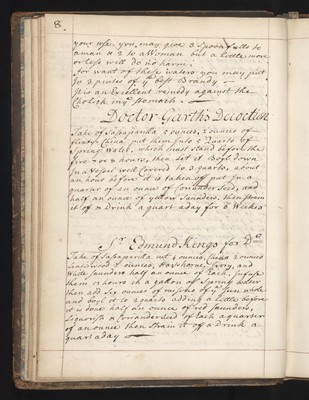 8.
your use. you may give 3 Spoonfulls to
a man & 2 to a Woman but a little more
or less will do no harm.
for want of these waters you may put
in 3 pintes of yᵉ best Brandy
It is an Excellent remidy against the
Cholick in yᵉ stomach.
Docter Garth's Decoction
Take of Sasaparilla 5 ounces, 2 ounces of
China put them into 5 quarts of
Spring Water, which must stand before the
fire 7 or 8 hours, then let it Boyl down
in a vessel well Covered to 3 quarts, about
an hour before it is taken off put in a
quarter of an ounce of Coriander Seed, and
half an ounce of yellow Saunders, then strain
it off a Drink a quart a day for 6 Weeks
Sʳ Edmund Kings for Dº
Take of Sasaparilla cut 4 ounces, China 2 ounces
ounces, Harts horne, Ivory, and
White Saunders half an ounce of Each. Infuse
them 12 hours in a gallon of Spring water
then add Six ounces of of yᵉ Sun whole
and boyl it to 2 quarts adding a little before
it is done half an ounce of red Saunders,
Liquorish & Coriander seed of Each a quarter
of an ounce then strain it off a Drink a
quart a day